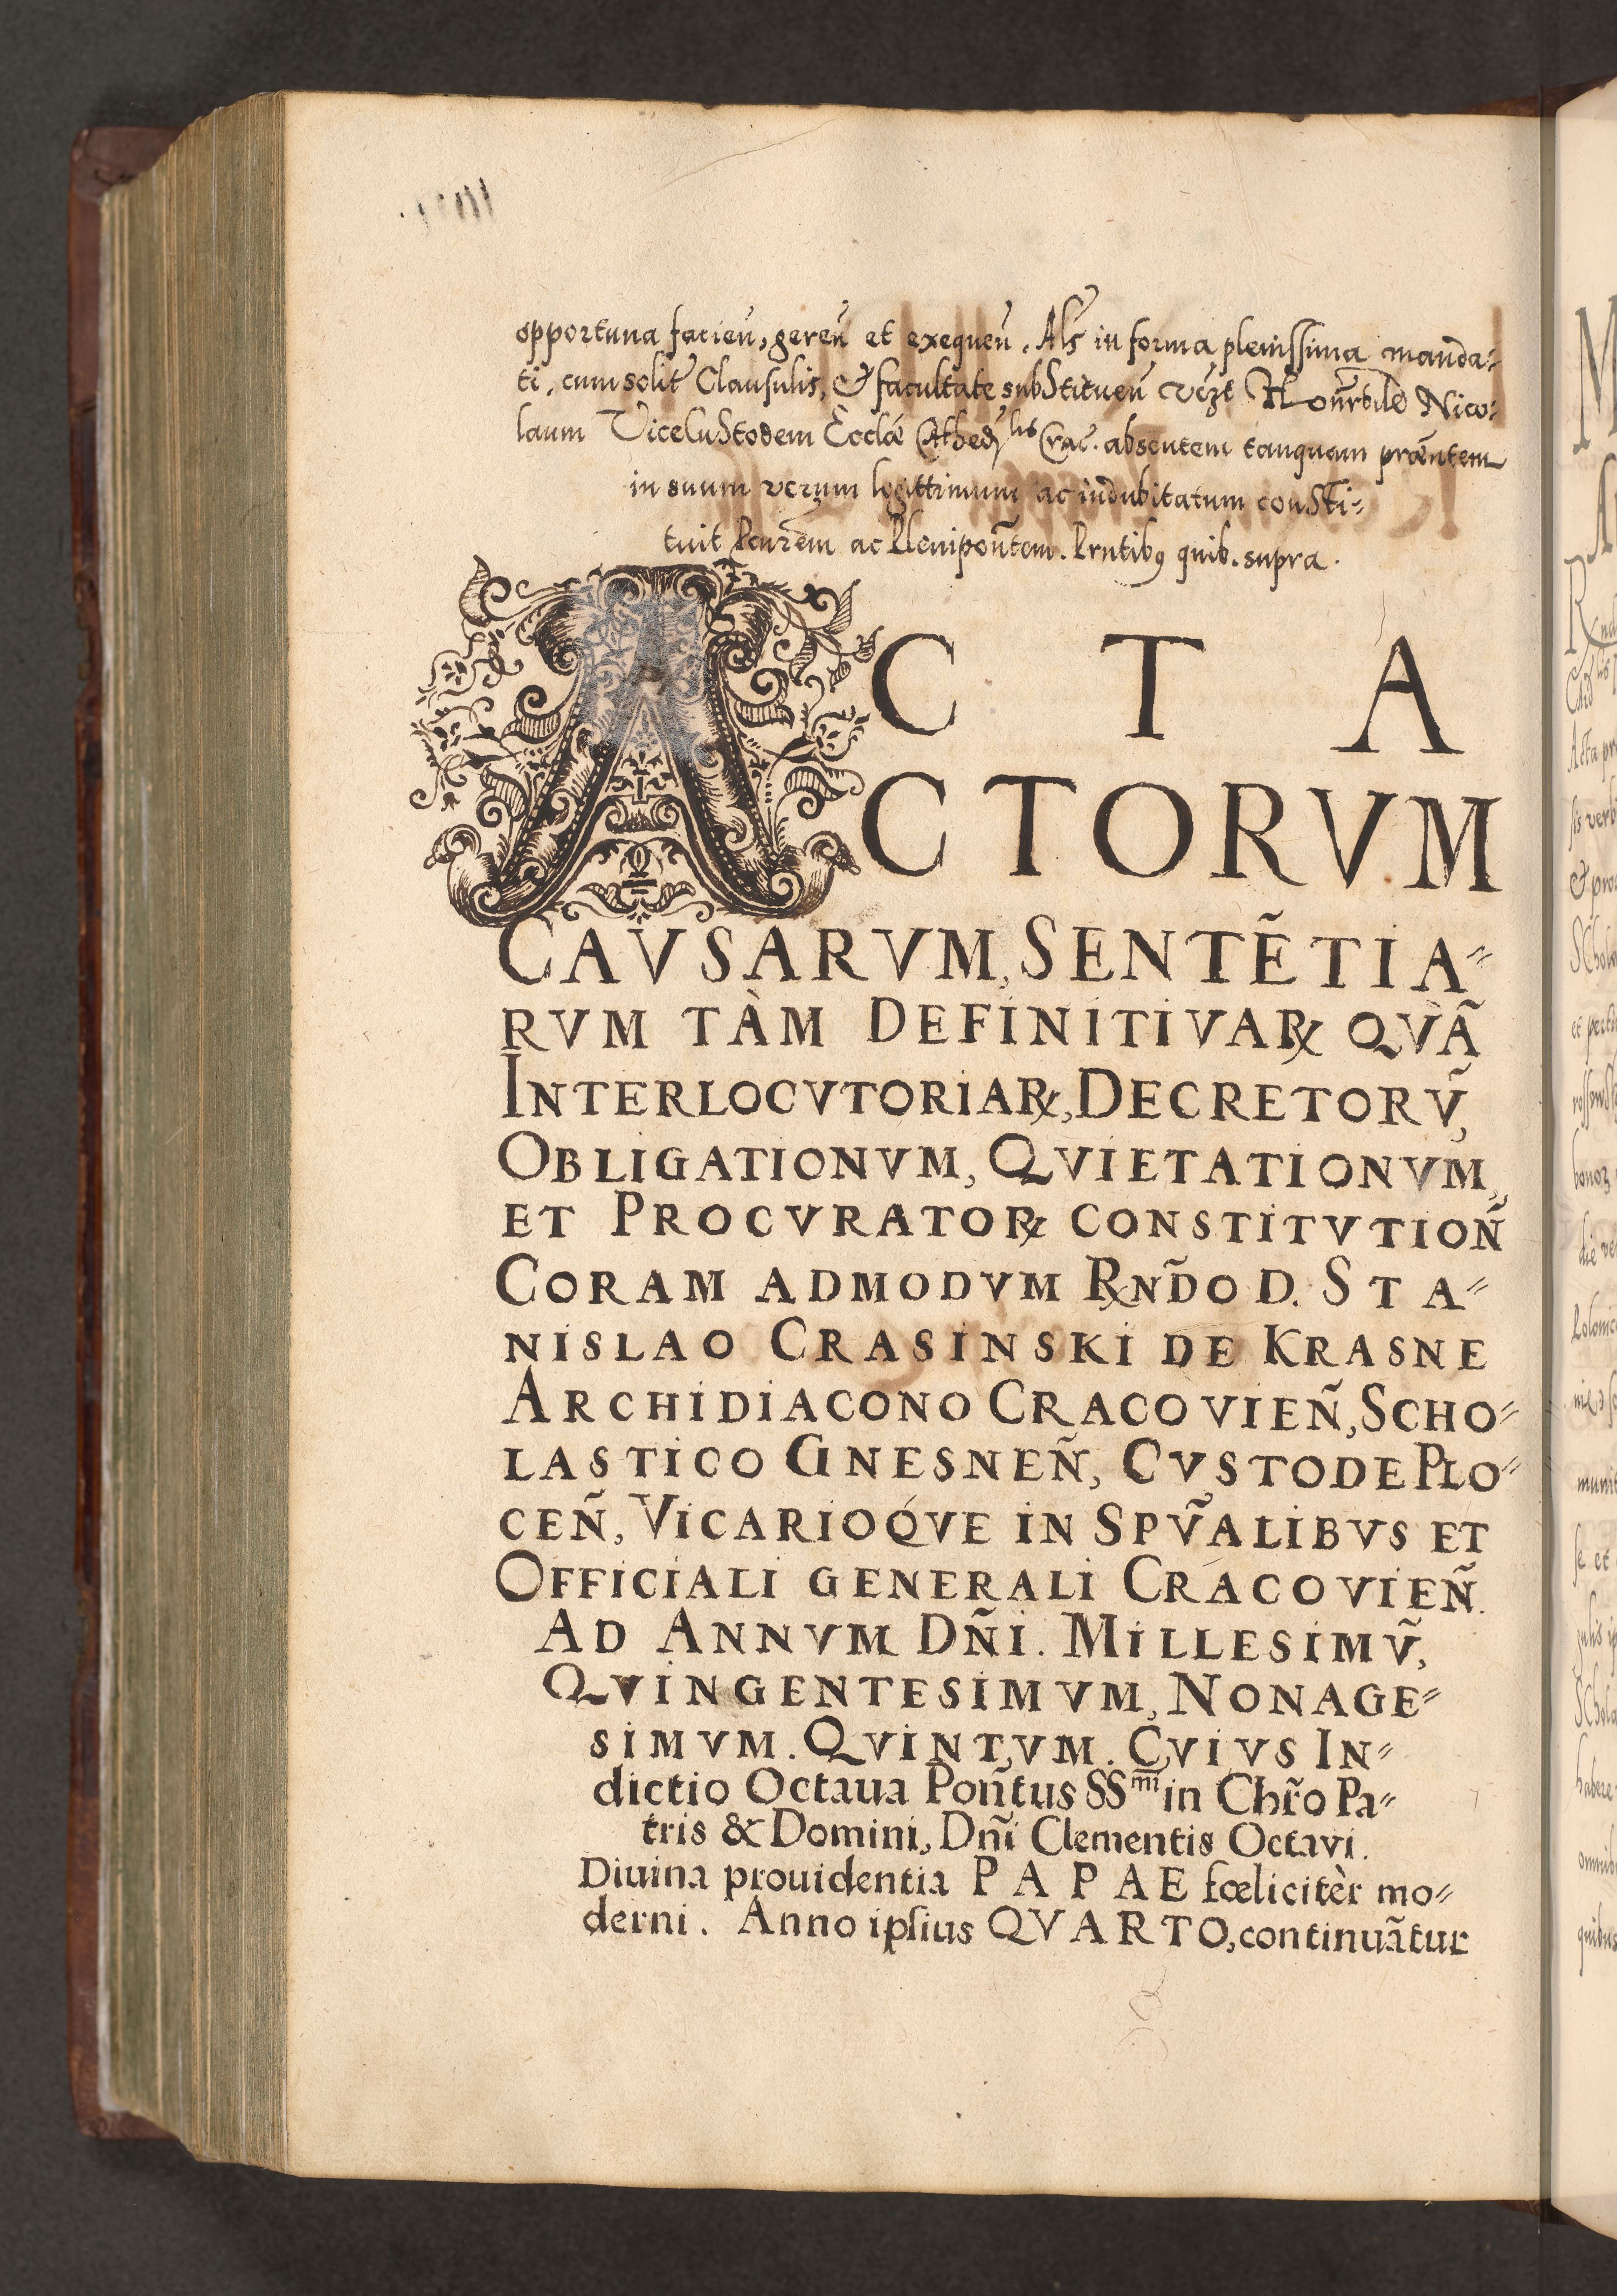 opportuna facieñ, gereñ et exequeñ. Als̃ in forma plenissima manda⸗
ti, cum solit̃ Clausulis, & facultate substitueñ vz̃t Honr̃bilẽ Nico⸗
laum ViceCustodem Ecclæ̃ Cathed lis Crac̃. absentem tanquam præñtem
in suum verum legittimum ac indubitatum consti⸗
tuit Pcurẽm ac Plenipoñtem. Prñtibꝫ quib. supra.
ACTA
ACTORVM
CAVSARVM, SENTẼTIA⸗
RVM TÀM DEFINITIVAꝜ QVÃ
INTERLOCVTORIAꝜ, DECRETORṼ,
OBLIGATIONVM, QVIETATIONVM,
ET PROCVRATOꝜ CONSTITVTIOÑ
CORAM ADMODVM RÑDO D. STA⸗
NISLAO CRASINSKI DE KRASNE
ARCHIDIACONO CRACOVIEÑ, SCHO⸗
LASTICO GNESNEÑ, CVSTODE PLO⸗
CEÑ, VICARIOQ́VE IN SPṼALIBVS ET
OFFICIALI GENERALI CRACOVIEÑ.
AD ANNVM DÑI. MILLESIMṼ,
QVINGENTESIMVM, NONAGE⸗
SIMVM. QVINTVM. CVIVS IN⸗
dictio Octaua Poñtus SSmi in Chr̃o Pa⸗
tris & Domini, Dñi Clementis Octavi.
Diuina prouidentia PAPAE fœlicitèr mo⸗
derni. Anno ipsius QVARTO, continuãtur